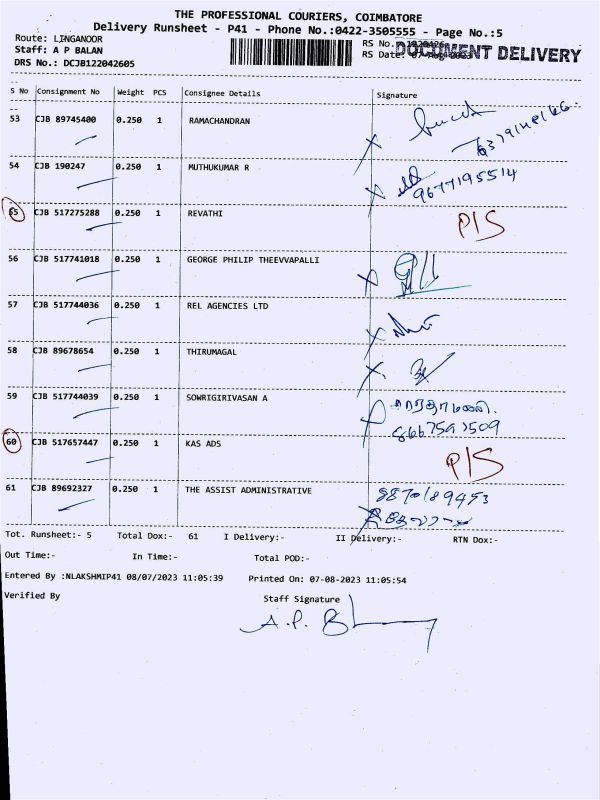 THE PROFESSIONAL COURIERS, COIMBATORE
Delivery Runsheet - P41 - Phone No.:0422-3505555 - Page No.:5
Route: LINGANOOR
Staff: A P BALAN
DRS No.: DCJB122042605
RS No.
RS Date:
DOCUMENT DELIVERY
S No Consignment No Weight PCS Consignee Details Signature
53 CJB 89745400 0.250 1 RAMACHANDRAN
54 CJB 190247 0.250 1 MUTHUKUMAR R
9677195514
55 CJB 517275288 0.250 1 REVATHI P/S
56 CJB 517741018 0.250 1 GEORGE PHILIP THEEVVAPALLI
57 CJB 517744036 0.250 1 REL AGENCIES LTD
58 CJB 89678654 0.250 1 THIRUMAGAL
59 CJB 517744039 0.250 1 SOWRIGIRIVASAN A
60 CJB 517657447 0.250 1 KAS ADS P/S
61 CJB 89692327 0.250 1 THE ASSIST ADMINISTRATIVE
Tot. Runsheet:- 5 Total Dox:- 61 I Delivery:- II Delivery:- RTN Dox:-
Out Time:- In Time:- Total POD:-
Entered By :NLAKSHMIP41 08/07/2023 11:05:39 Printed On: 07-08-2023 11:05:54
Verified By Staff Signature
A.P. B